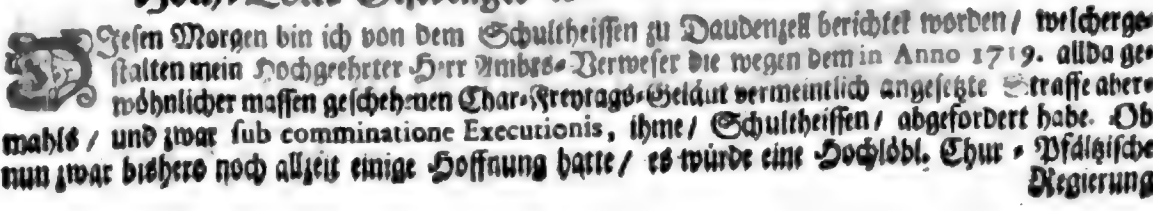 DIesen Morgen bin ich von dem Schultheissen zu Daudenzell berichtet worden / welcherge-
stalten mein Hochgeehrter Herr Ambts-Verweser die wegen dem in Anno 1719. allda ge-
wöhnlicher massen geschehenen Char-Freytags-Geläut vermeintlich angesetzte Straffe aber-
mahls / und zwar sub comminatione Executionis, ihme / Schultheissen / abgefordert habe. Ob
nun zwar bishero noch allzeit einige Hoffnung hatte / es würde eine Hochlöbl. Chur-Pfältzische
Regierung